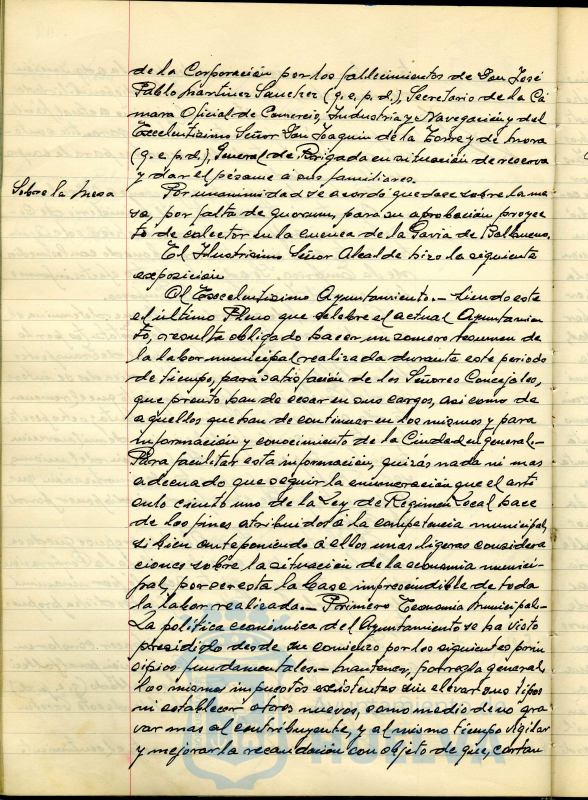 de la Corporación por los fallecimientos de Don José
Pablo Martínez Sanchez (q.e.p.d.), Secretario de la Cá
mara Oficial de Comercio, Industria y Navegación y del
Excelentísimo Señor Don Joaquín de la Torre y de Mora
(q.e.p.d.), General de Brigada en situación de reserva
y dar el pésame a sus familiares.
Sobre la Mesa
Por unanimidad se acordó quedase sobre la me
sa, por falta de quorum, para su aprobación proyec
to de colector en la cuenca de la Gavia de
El Ilustrísimo Señor Alcalde hizo la siguiente
exposición
Al Excelentísimo Ayuntamiento.- Siendo este
el último Pleno que celebre el actual Ayuntamien
to, resulta obligado hacer un somero resumen de
la labor municipal realizada durante este periodo
de tiempo, para satisfación de los Señores Concejales,
que pronto han de cesar en sus cargos, asi como de
aquellos que han de continuar en los mismos y para
información y conocimiento de la Ciudad en general.-
Para facilitar esta información, quizás nada ni mas
adecuado que seguir la enumeración que el artí
culo ciento uno de la Ley de Régimen Local hace
de los fines atribuidos á la competencia municipal,
si bien anteponiendo á ellos unas ligeras considera
ciones sobre la situación de la economía munici
pal, por ser esta la base imprescindible de toda
la labor realizada.- Primero Economía Municipal.-
La política económica del Ayuntamiento se ha visto
presidido desde su comienzo por los siguientes prin
cipios fundamentales.- Mantener, por regla general
los mismos impuestos existentes sin elevar sus tipos
ni establecer otros nuevos, como medio de no gra
var mas al contribuyente, y al mismo tiempo vigilar
y mejorar la recaudación con objeto de que, cortan